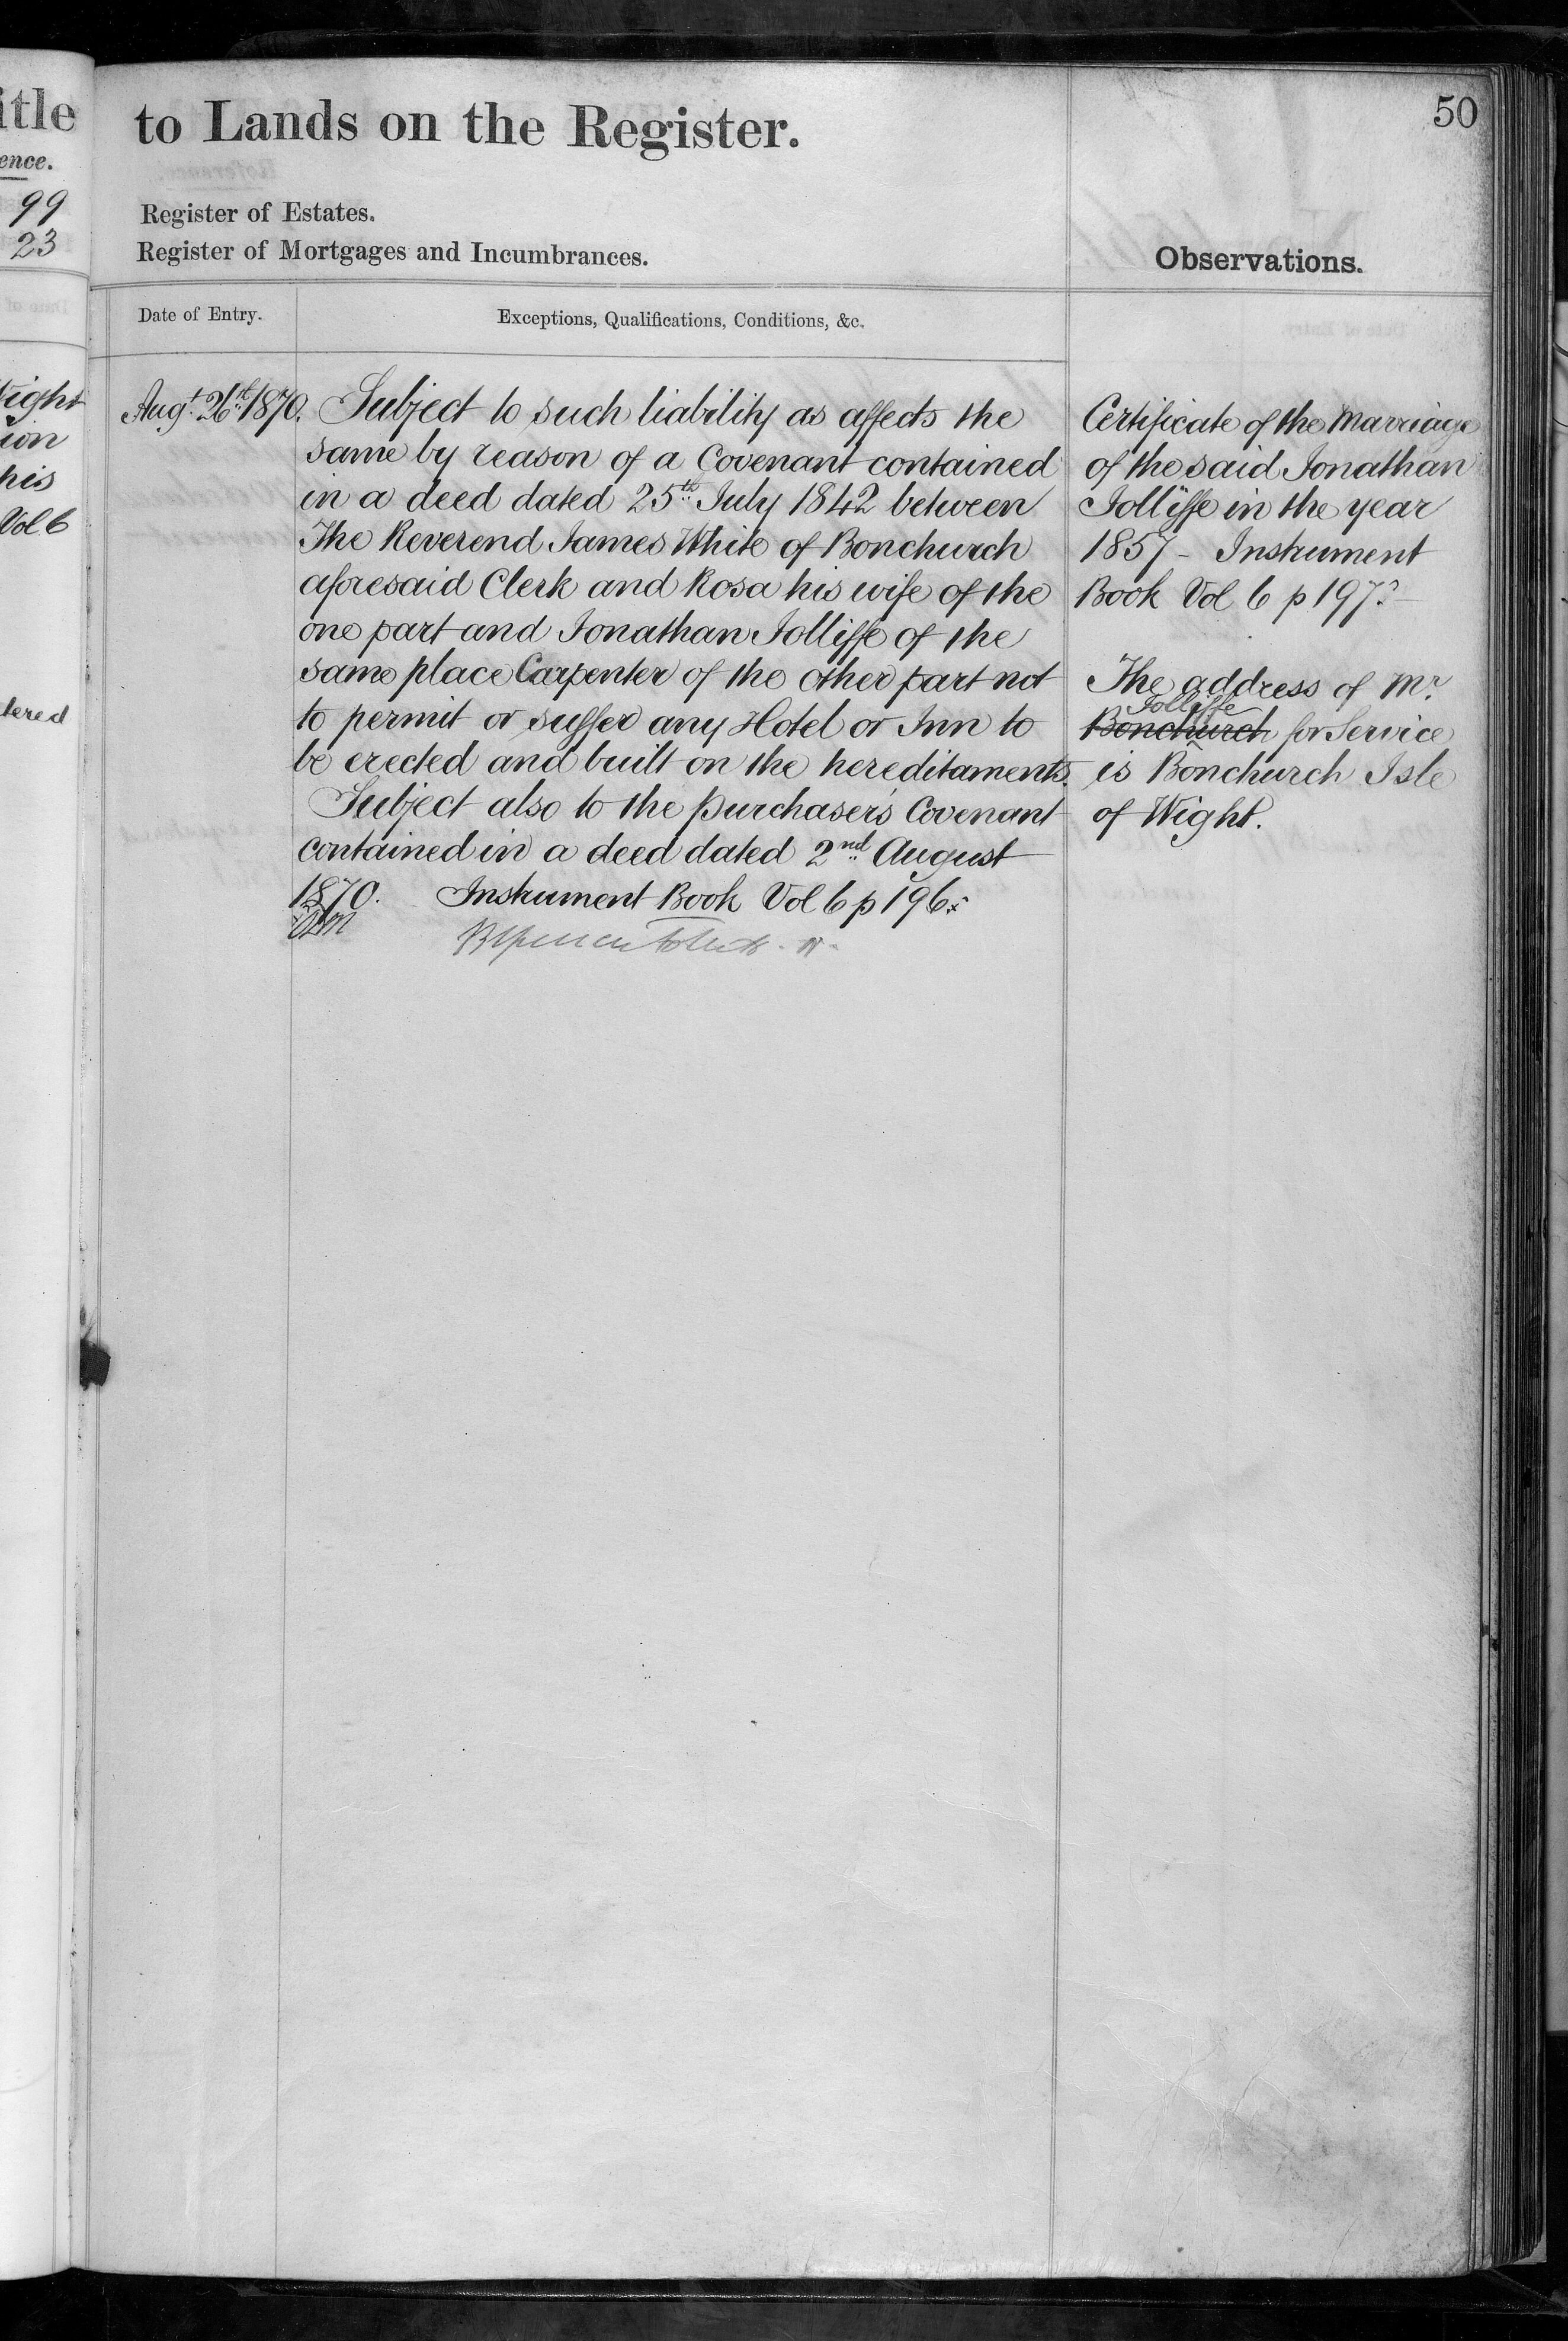 itle
ence.
99
23
ight
ion
his
Vol 6
tered
50
to Lands on the Register.
Register of Estates.
Register of Mortgages and Incumbrances.
Observations.
Date of Entry.
Exceptions, Qualifications, Conditions, &c.
Augt. 26th 1870.
Subject to such liability as affects the
same by reason of a Covenant contained
in a deed dated 25th July 1842 between
The Reverend James White of Bonchurch
aforesaid Clerk and Rosa his wife of the
one part and Jonathan Jolliffe of the
same place Carpenter of the other part not
to permit or suffer any Hotel or Inn to
be erected and built on the hereditaments.
Subject also to the purchaser's Covenant
contained in a deed dated 2nd August
1870. Instrument Book Vol 6 p 196.
Certificate of the Marriage
of the said Jonathan
Jolliffe in the year
1857 - Instrument
Book Vol 6 p 197.
The address of Mr.
Jolliffe
Bonchurch for Service
is Bonchurch Isle
of Wight.